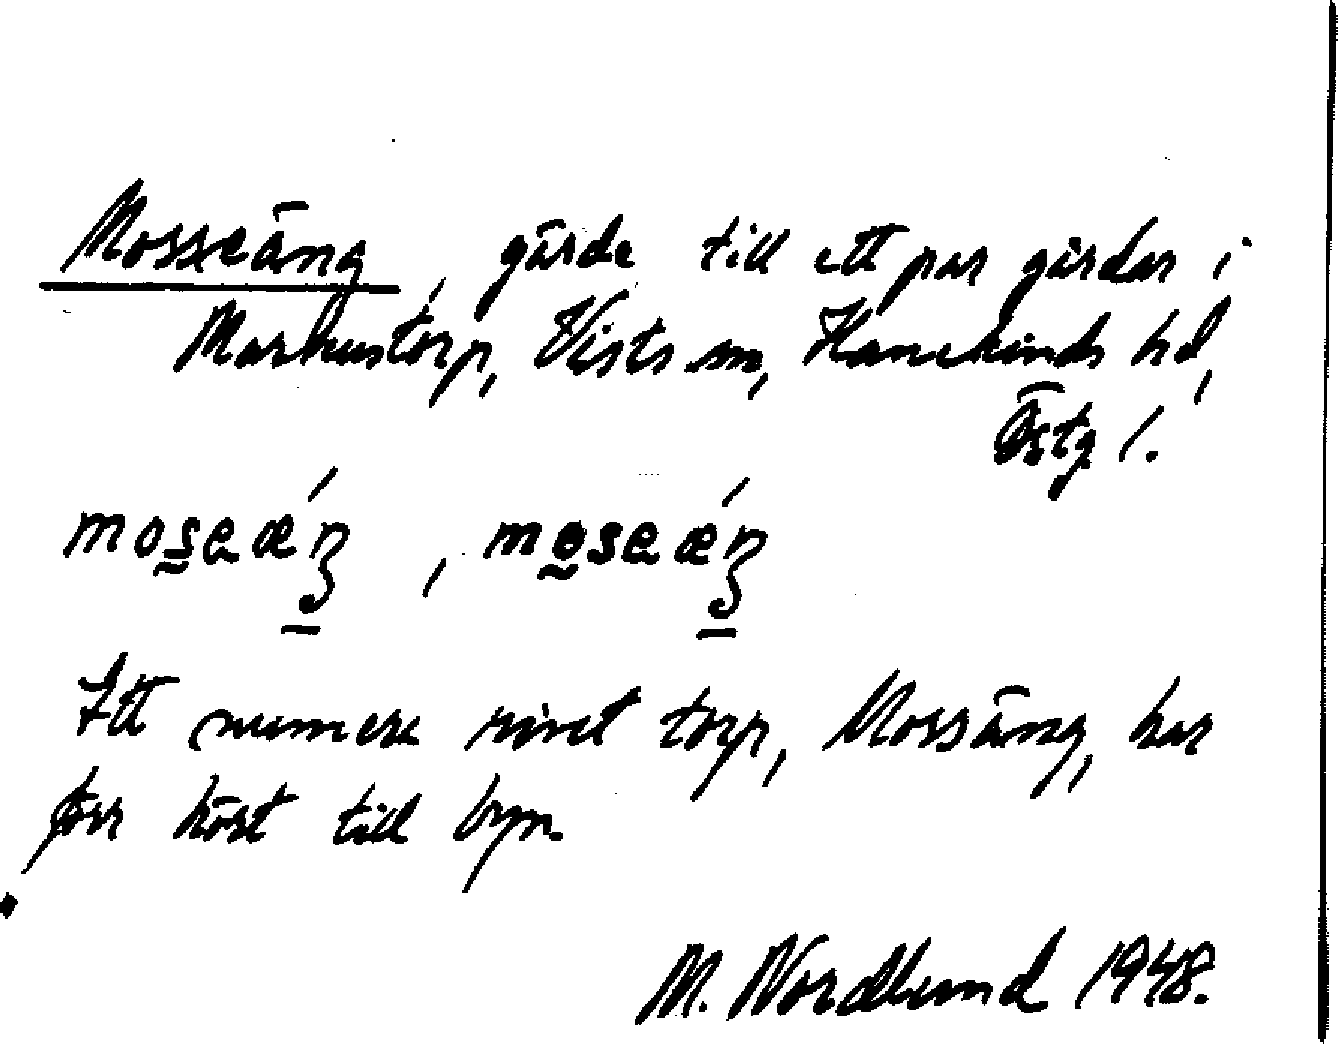 Mosseäng, gärde till ett par gårdar i
Markustorp, Vists sn, Hanekinds hd,
Östg l.
mos̰eæ´ŋ, mo̰seæ´ŋ
Ett numera rivet torp, Mossäng, har
förr hört till byn.
M. Nordlund 1948.